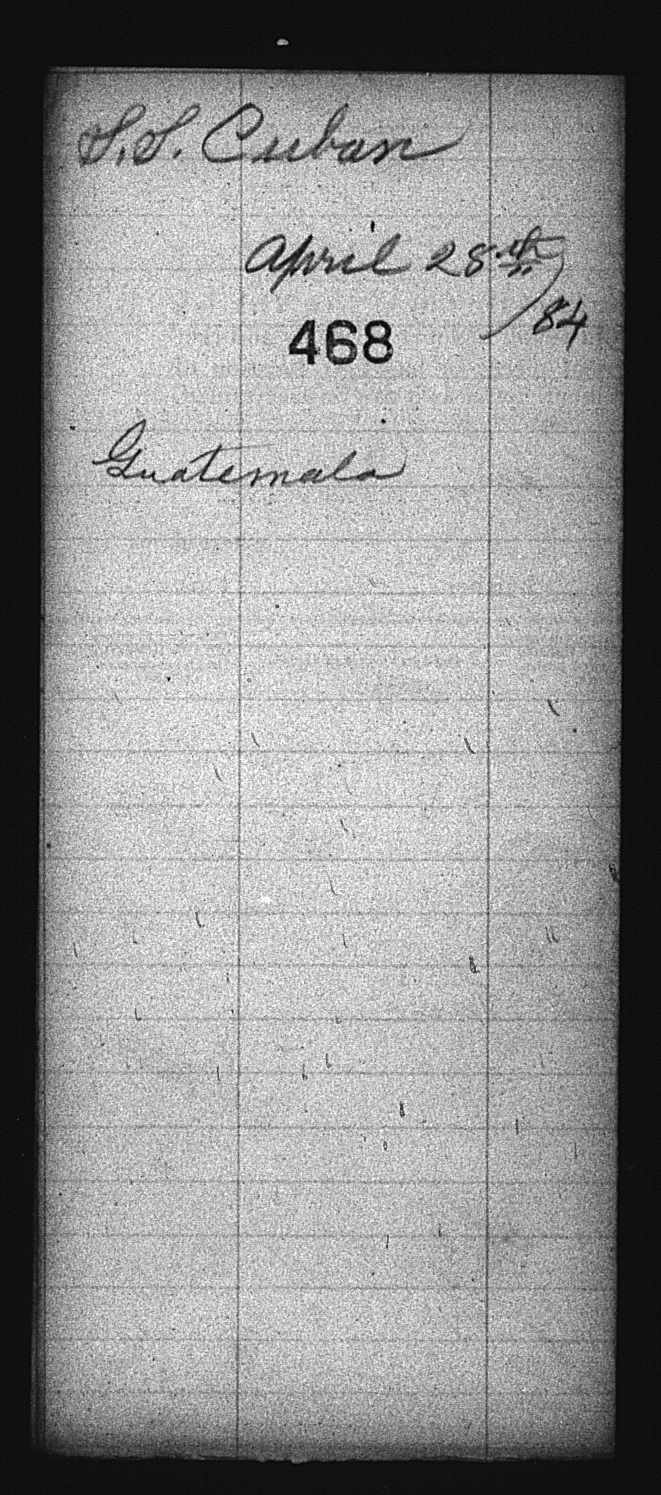 S.S. Cuban
April 28th
/84
468
Guatemala